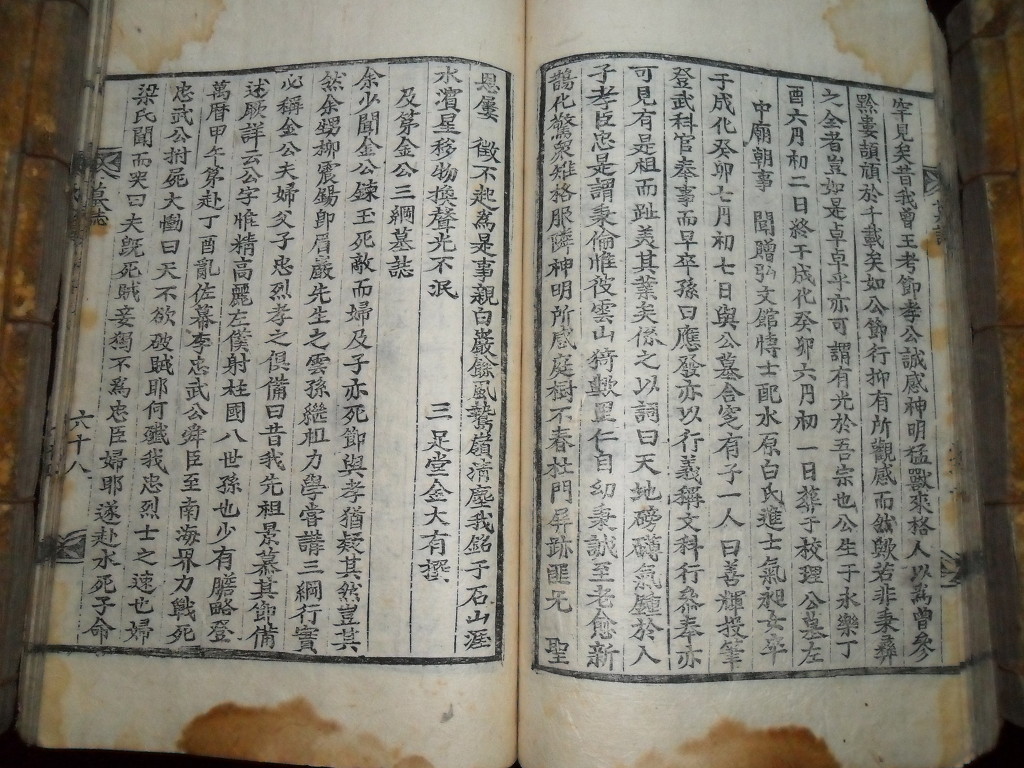 罕見矣昔我曾王考節孝公誠感神明猛獸來格人以爲曾參
黔婁頡頏於千載矣如公節行抑有所觀感而然歟若非秉彝
之全者豈如是卓卓乎亦可謂有光於吾宗也公生于永樂丁
酉六月初二日終于成化癸卯六月初一日葬于校理公墓左
中廟朝事 聞贈弘文館博士配水原白氏進士氣昶女卒
于成化癸卯七月初七日與公墓合窆有子一人曰善輝投筆
登武科官奉事而早卒孫曰應發亦以行義稱文科行叅奉亦
可見有是祖而趾美其葉矣係之以詞曰天地磅礴氣鍾於人
子孝臣忠是謂秉倫惟彼雲山猗歟里仁自幼秉誠至老愈新
鵲化驚衆雉格服隣神明所感庭樹不春杜門屛跡匪元 聖
恩屢 徵不起爲是事親白巖餘風鷲嶺淸塵我銘于石山涯
水濱星移物換聲光不泯
及第金公三綱墓誌
三足堂金大有撰
余少聞金公鍊玉死敵而婦及子亦死節與孝猶疑其然豈其
然余甥柳震錫卽眉巖先生之雲孫繼祖力學嘗講三綱行實
必稱金公夫婦父子忠烈孝之俱備曰昔我先祖景慕其節備
述厥詳云公字惟精高麗左僕射柱國八世孫也少有膽略登
萬曆甲午第赴丁酉亂佐幕李忠武公舜臣至南海界力戰死
忠武公拊屍大慟曰天不欲破賊耶何殲我忠烈士之速也婦
梁氏聞而哭曰夫旣死賊妾獨不爲忠臣婦耶遂赴水死子命
墓誌
六十八